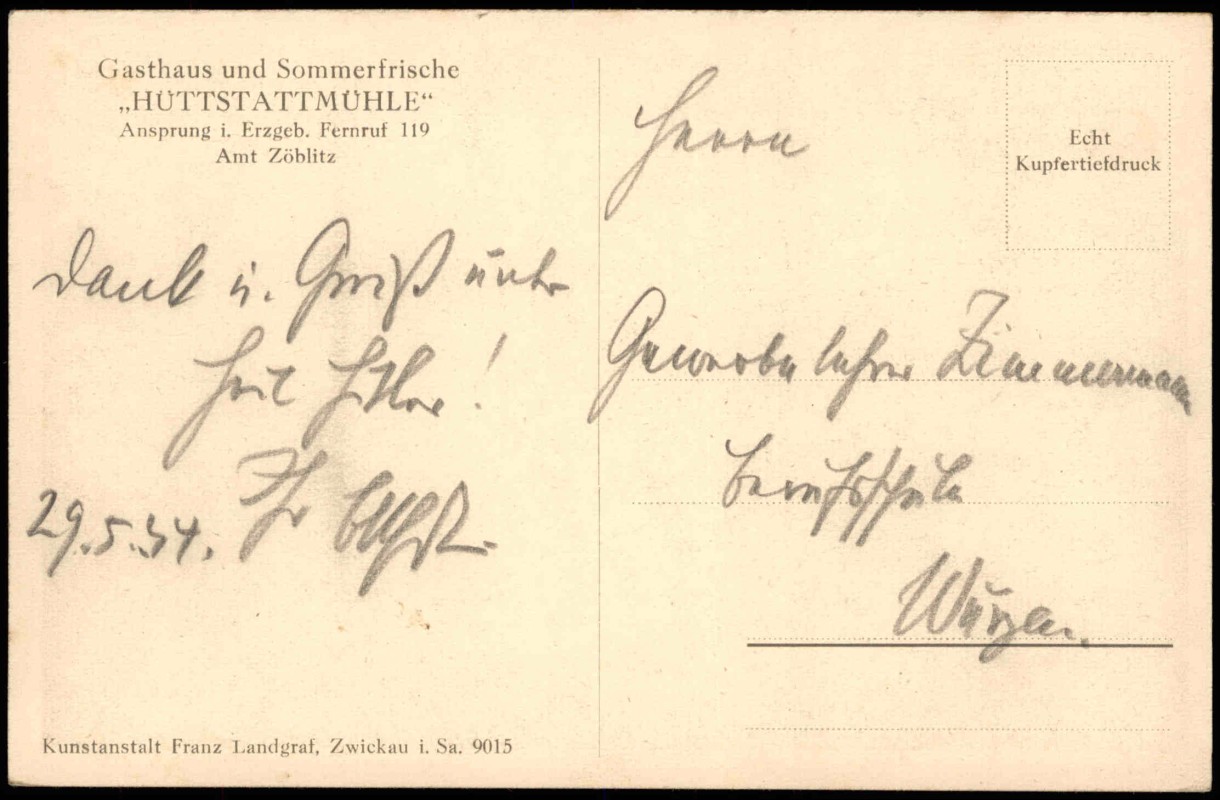 Gasthaus und Sommerfrische
„HÜTTSTATTMÜHLE“
Ansprung i. Erzgeb. Fernruf 119
Amt Zöblitz
Echt
Kupfertiefdruck
Herrn
Gewerbelehrer Zimmermann
Berufsschule
Wurzen.
Dank u. Gruß unter
Heil Hitler!
Ihr
29.5.34.
Kunstanstalt Franz Landgraf, Zwickau i. Sa. 9015